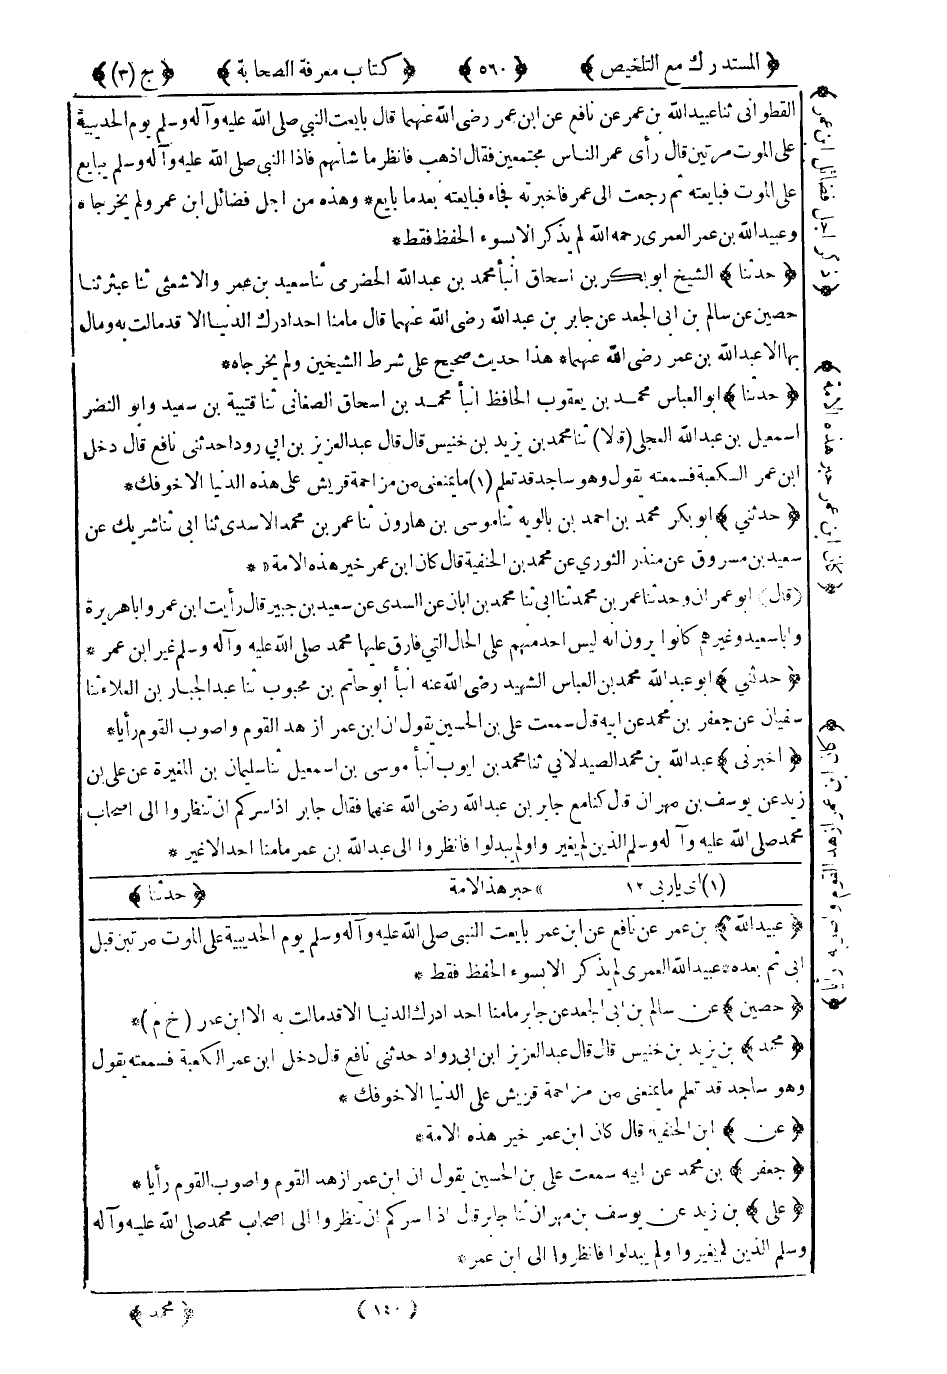 ﴿ المستدرك مع التلخيص ﴾ ﴿ ٥٦٠ ﴾ ﴿ كتاب معرفة الصحابة ﴾ ﴿ ج (٣) ﴾
القطوانى ثنا عبيدالله بن عمر عن نافع عن ابن عمر رضى الله عنهما قال بايعت النبي صلى الله عليه وآله وسلم يوم الحديبية
على الموت مرتين قال رأى عمر الناس مجتمعين فقال اذهب فانظر ما شأنهم فاذا النبي صلى الله عليه وآله وسلم يبايع
على الموت فبايعته ثم رجعت الى عمر فاخبرته فجاء فبايعته بعدما بايع * وهذه من اجل فضائل ابن عمر ولم يخرجاه
وعبيدالله بن عمر العمرى رحمه الله لم يذكر الا بسوء الحفظ فقط *
﴿ حدثنا ﴾ الشيخ ابو بكر بن اسحاق انبأ محمد بن عبدالله الحضرمى ثنا سعيد بن عمر والاشعثى ثنا عبثر ثنا
حصين عن سالم بن ابى الجعد عن جابر بن عبدالله رضى الله عنهما قال مامنا احد ادرك الدنيا الا قد مالت به ومال
بها الا عبدالله بن عمر رضى الله عنهما * هذا حديث صحيح على شرط الشيخين ولم يخرجاه *
﴿ حدثنا ﴾ ابو العباس محمد بن يعقوب الحافظ انبأ محمد بن اسحاق الصغانى ثنا قتيبة بن سعيد وابو النضر
اسمعيل بن عبدالله العجلى (قالا) ثنا محمد بن يزيد بن خنيس قال قال عبدالعزيز بن ابي رواد حدثنى نافع قال دخل
ابن عمر الكعبة فسمعته يقول وهو ساجد قد تعلم (١) مايمنعنى من مزاحمة قريش على هذه الدنيا الا خوفك *
﴿ حدثني ﴾ ابو بكر محمد بن احمد بن بالويه ثنا موسى بن هارون ثنا عمر بن محمد الاسدى ثنا ابى ثنا شريك عن
سعيد بن مسروق عن منذر الثوري عن محمد بن الحنفية قال كان ابن عمر خير هذه الامة « *
(قال) ابو عمران وحدثنا عمر بن محمد ثنا ابى ثنا محمد بن ابان عن السدى عن سعيد بن جبير قال رأيت ابن عمر وابا هريرة
وابا سعيد وغيرهم كانوا يرون انه ليس احد منهم على الحال التي فارق عليها محمد صلى الله عليه وآله وسلم غير ابن عمر *
﴿ حدثني ﴾ ابو عبدالله محمد بن العباس الشهيد رضى الله عنه انبأ ابو حاتم بن محبوب ثنا عبدالجبار بن العلاء ثنا
سفيان عن جعفر بن محمد عن ابيه قال سمعت على بن الحسين يقول ان ابن عمر ازهد القوم واصوب القوم رأيا *
﴿ اخبرنى ﴾ عبدالله بن محمد الصيدلاني ثنا محمد بن ايوب انبأ موسى بن اسمعيل ثنا سليمان بن المغيرة عن على بن
زيد عن يوسف بن مهران قال كنا مع جابر بن عبدالله رضى الله عنهما فقال جابر اذا سركم ان تنظروا الى اصحاب
محمد صلى الله عليه وآله وسلم الذين لم يغير واولم يبدلوا فانظروا الى عبدالله بن عمر مامنا احد الا غير *
(١) اى يارب ١٢ » حبر هذ الامة ﴿ حدثنا ﴾
﴿ عبيدالله ﴾ بن عمر عن نافع عن ابن عمر بايعت النبي صلى الله عليه وآله وسلم يوم الحديبية على الموت مرتين قبل
ابى ثم بعده * عبيدالله العمرى لم يذكر الا بسوء الحفظ فقط *
﴿ حصين ﴾ عن سالم بن ابى الجعد عن جابر مامنا احد ادرك الدنيا الا قد مالت به الا ابن عمر ( خ م ) *
﴿ محمد ﴾ بن يزيد بن خنيس قال قال عبدالعزيز ابن ابى رواد حدثنى نافع قال دخل ابن عمر الكعبة فسمعته يقول
وهو ساجد قد تعلم مايمنعنى من مزاحمة قريش على الدنيا الا خوفك *
﴿ عن ﴾ ابن الحنفية قال كان ابن عمر خير هذه الامة *
﴿ جعفر ﴾ بن محمد عن ابيه سمعت على بن الحسين يقول ان ابن عمر ازهد القوم واصوب القوم رأيا *
﴿ على ﴾ بن زيد عن يوسف بن مهران ثنا جابر قال اذا سركم ان تنظروا الى اصحاب محمد صلى الله عليه وآله
وسلم الذين لم يغيروا ولم يبدلوا فانظروا الى ابن عمر *
﴿ محمد ﴾ (١٤٠)
﴿ ذكر اجل فضائل ابن عمر ﴾
﴿ كان ابن عمر خير هذه الامة ﴾